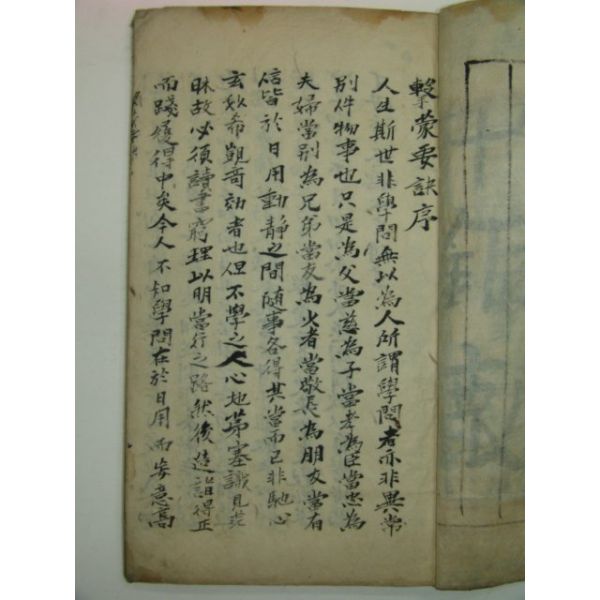 擊蒙要訣序
人生斯世非學問無以為人所謂學問者亦非異常
別件物事也只是為父當慈為子當孝為臣當忠為
夫婦當別為兄弟當友為少者當敬長為朋友當有
信皆於日用動靜之間隨事各得其當而已非馳心
玄妙希覬奇効者也但不學之人心地茅塞識見茫
昧故必須讀書窮理以明當行之路然後造詣得正
而踐履得中矣今人不知學問在於日用而妄意高